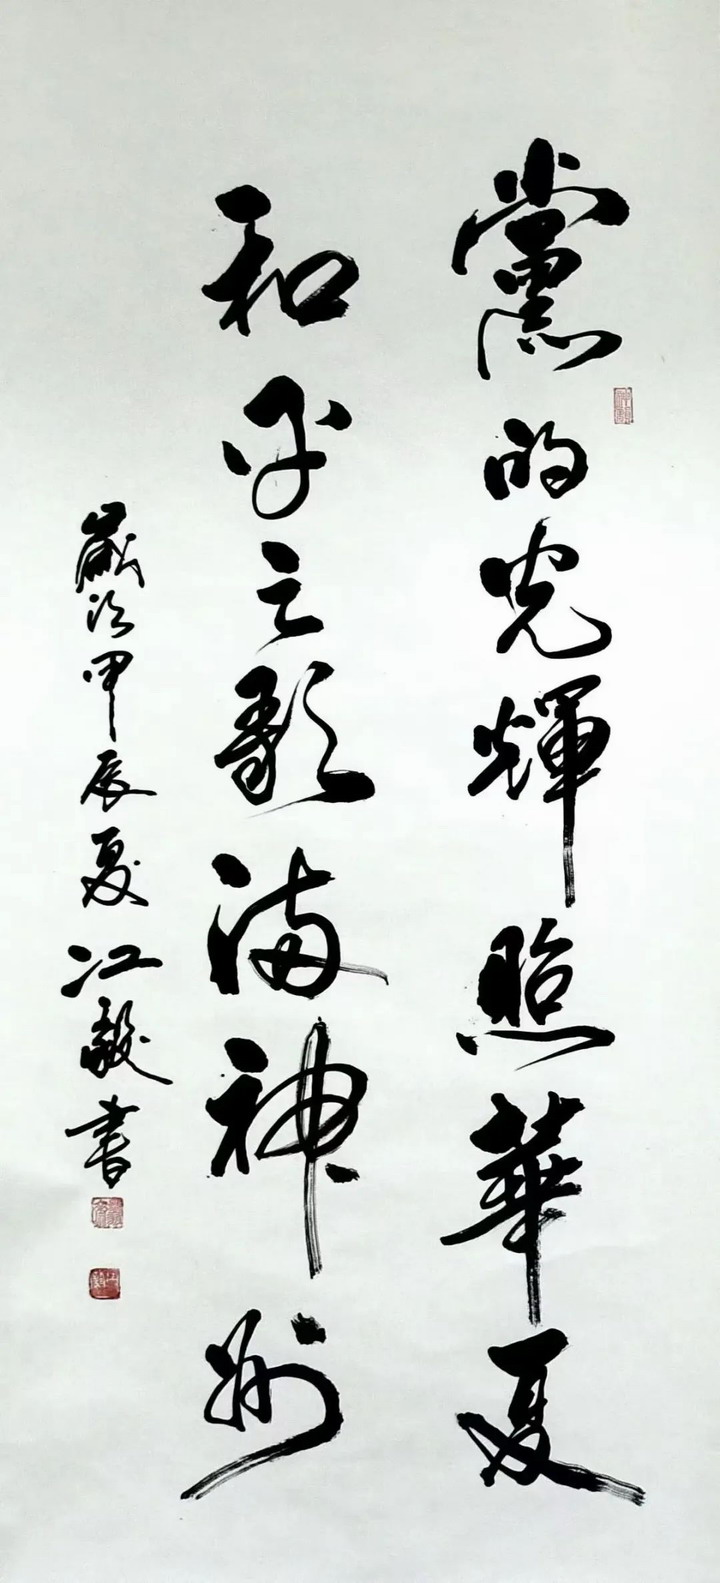 黨的光輝照華夏
和平之歌满神州
歲次甲辰夏江毅書